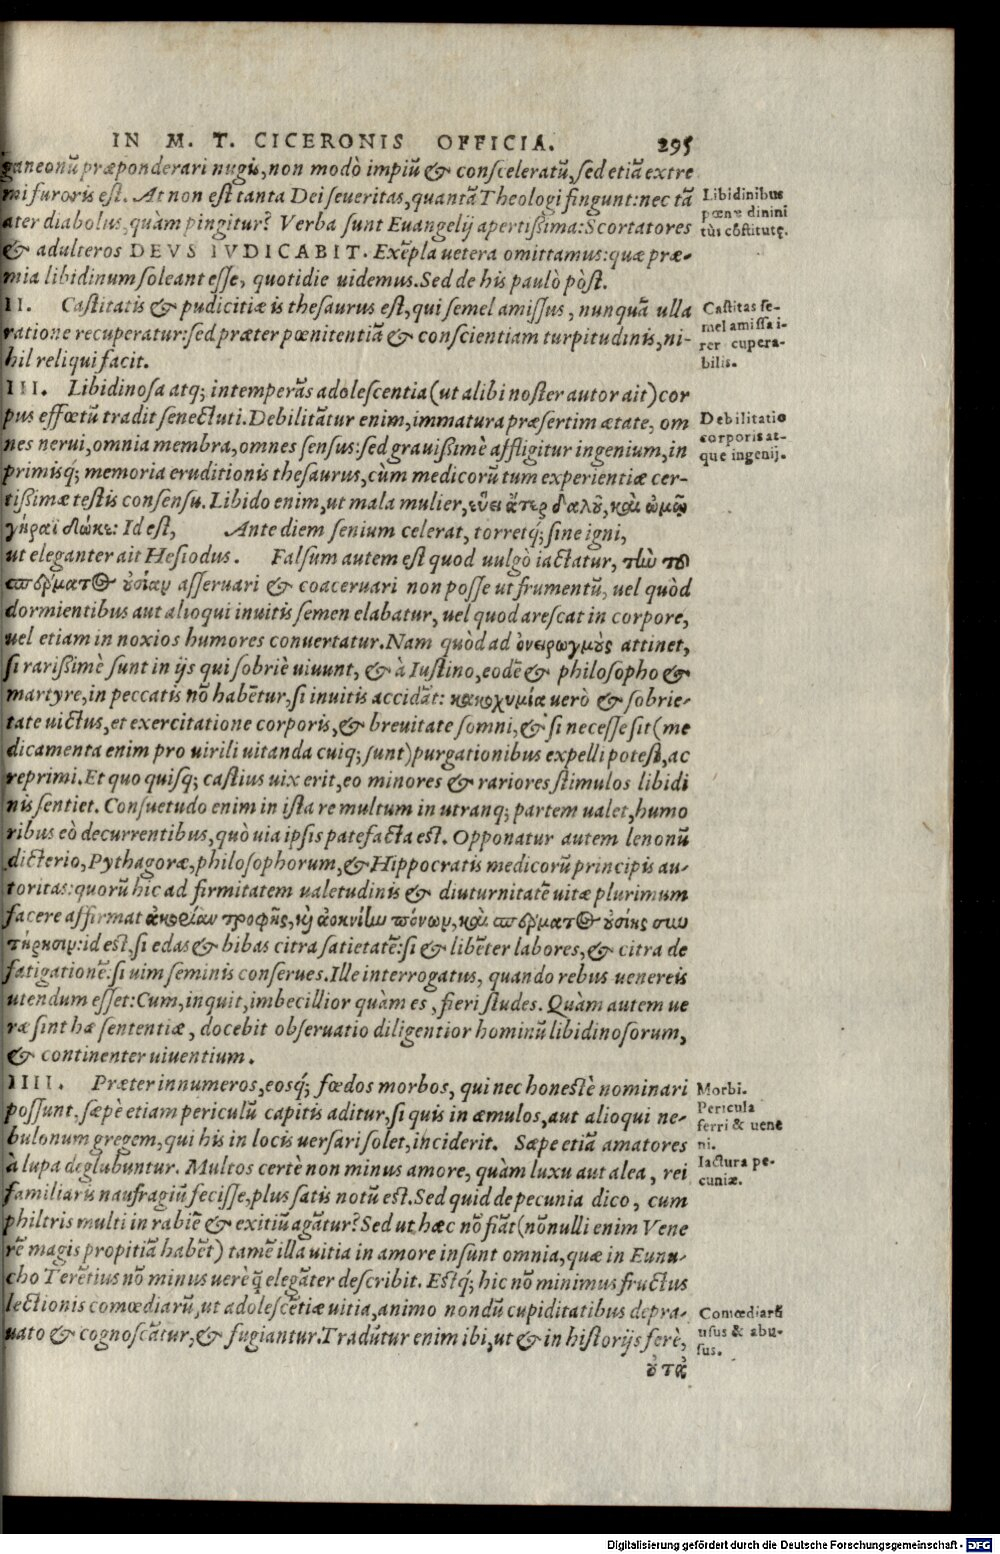 IN M. T. CICERONIS OFFICIA. 295
ganeonũ præponderari nugis, non modò impiũ & consceleratũ, sed etiã extre
mi furoris est. At non est tanta Dei seueritas, quantã Theologi fingunt: nec tã
ater diabolus, quàm pingitur? Verba sunt Euangelij apertißima: Scortatores
& adulteros DEVS IVDICABIT. Exẽpla uetera omittamus: quæ præ-
mia libidinum soleant esse, quotidie uidemus. Sed de his paulò pòst.
Libidinibus
pœnæ diuini
tùs cõstitutę.
II. Castitatis & pudicitiæ is thesaurus est, qui semel amissus, nunquã ulla
ratione recuperatur: sed præter pœnitentiã & conscientiam turpitudinis, ni-
hil reliqui facit.
Castitas se-
mel amissa i-
rer cupera-
bilis.
III. Libidinosa atq; intemperãs adolescentia (ut alibi noster autor ait) cor
pus effœtũ tradit senectuti. Debilitãtur enim, immatura præsertim ætate, om
nes nerui, omnia membra, omnes sensus: sed grauißimè affligitur ingenium, in
primisq; memoria eruditionis thesaurus, cùm medicorũ tum experientiæ cer-
tißimæ testis consensu. Libido enim, ut mala mulier, εὕει ἄτερ δαλοῦ, καὶ ὠμῷ
γήραϊ δῶκε: Id est, Ante diem senium celerat, torretq́; sine igni,
ut eleganter ait Hesiodus. Falsum autem est quod uulgò iactatur, τὼ τοῦ
σπέρματος οὐσίαν asseruari & coaceruari non posse ut frumentũ, uel quòd
dormientibus aut alioqui inuitis semen elabatur, uel quod arescat in corpore,
uel etiam in noxios humores conuertatur. Nam quòd ad ὀνειρωγμοὺς attinet,
si rarißimè sunt in ijs qui sobriè uiuunt, & à Iustino, eodẽ & philosopho &
martyre, in peccatis nõ habẽtur, si inuitis accidãt: κακοχυμία uerò & sobrie-
tate uictus, et exercitatione corporis, & breuitate somni, & si necesse sit (me
dicamenta enim pro uirili uitanda cuiq; sunt) purgationibus expelli potest, ac
reprimi. Et quo quisq; castius uixerit, eo minores & rariores stimulos libidi
nis sentiet. Consuetudo enim in ista re multum in utranq; partem ualet, humo
ribus eò decurrentibus, quò uia ipsis patefacta est. Opponatur autem lenonũ
dicterio, Pythagoræ, philosophorum, & Hippocratis medicorũ principis au-
toritas: quorũ hic ad firmitatem ualetudinis & diuturnitatẽ uitæ plurimum
facere affirmat ἀκορίαν τροφῆς, καὶ ἀοκνίην πόνων, καὶ σπέρματος οὐσίης συν
τήρησιν: id est, si edas & bibas citra satietatẽ: si & libẽter labores, & citra de
fatigationẽ: si uim seminis conserues. Ille interrogatus, quando rebus uenereis
utendum esset: Cum, inquit, imbecillior quàm es, fieri studes. Quàm autem ue
ræ sint hæ sententiæ, docebit obseruatio diligentior hominũ libidinosorum,
& continenter uiuentium.
Debilitatio
corporis at-
que ingenij.
IIII. Præter innumeros, eosq́; fœdos morbos, qui nec honestè nominari
possunt, sæpè etiam periculũ capitis aditur, si quis in æmulos, aut alioqui ne-
bulonum gregem, qui his in locis uersari solet, inciderit. Sæpe etiã amatores
à lupa deglubuntur. Multos certè non minus amore, quàm luxu aut alea, rei
familiaris naufragiũ fecisse, plus satis notũ est. Sed quid de pecunia dico, cum
philtris multi in rabiẽ & exitiũ agãtur? Sed ut hæc nõ fiãt (nõnulli enim Vene
rẽ magis propitiã habẽt) tamẽ illa uitia in amore insunt omnia, quæ in Eunu-
cho Terẽtius nõ minus uerè q̃ elegãter describit. Estq́; hic nõ minimus fructus
lectionis comœdiarũ, ut adolescẽtiæ uitia, animo nondũ cupiditatibus depra-
uato & cognoscãtur, & fugiantur. Tradũtur enim ibi, ut & in historijs ferè,
οὐτα
Morbi.
Pericula
ferri & uene
ni.
Iactura pe-
cuniæ.
Comœdiarũ
usus & abu-
sus.
Digitalisierung gefördert durch die Deutsche Forschungsgemeinschaft - DFG